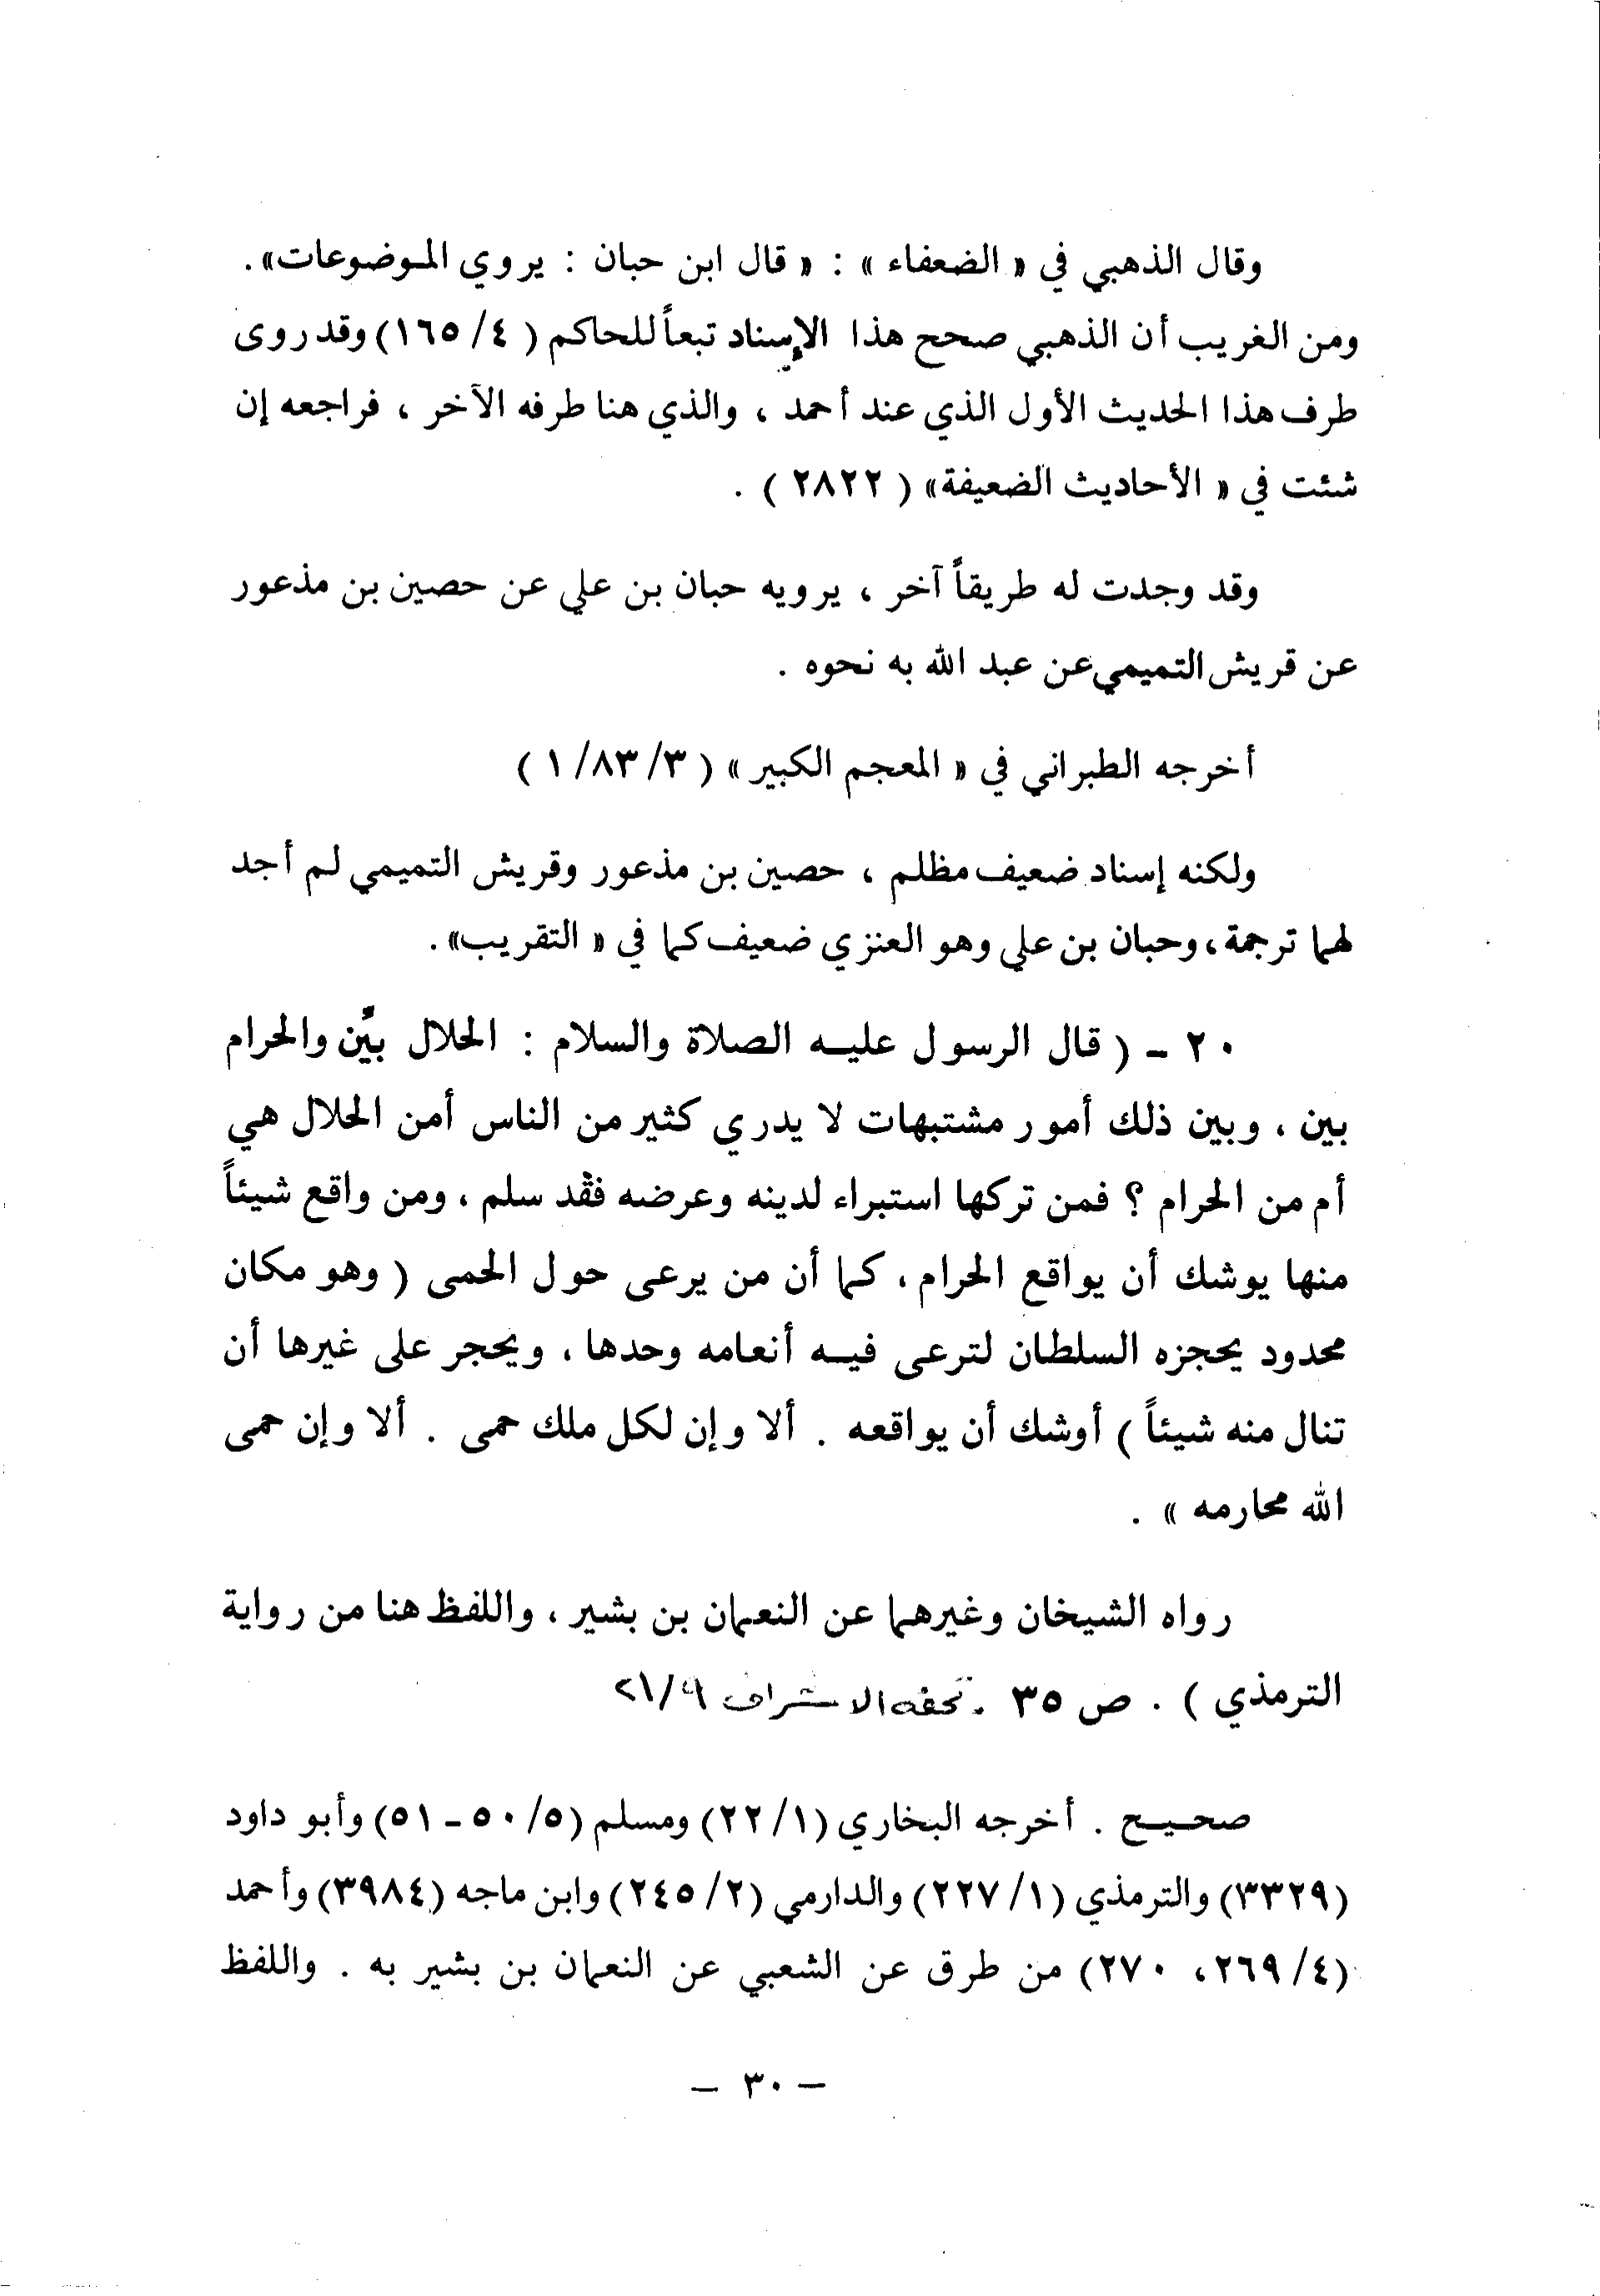 وقال الذهبي في « الضعفاء » : « قال ابن حبان : يروي الموضوعات» .
ومن الغريب أن الذهبي صحح هذا الإسناد تبعاً للحاكم ( ٤/ ١٦٥) وقد روى
طرف هذا الحديث الأول الذي عند أحمد ، والذي هنا طرفه الآخر ، فراجعه إن
شئت في « الأحاديث الضعيفة» ( ٢٨٢٢ ) .
وقد وجدت له طريقاً آخر ، يرويه حبان بن علي عن حصين بن مذعور
عن قريش التميمي عن عبد الله به نحوه .
أخرجه الطبراني في « المعجم الكبير » ( ٣/ ٨٣/ ١ )
ولكنه إسناد ضعيف مظلم ، حصين بن مذعور وقريش التميمي لم أجد
لهما ترجمة ، وحبان بن علي وهو العنزي ضعيف كما في « التقريب» .
٢٠ - ( قال الرسول عليه الصلاة والسلام : الحلال بيّن والحرام
بين ، وبين ذلك أمور مشتبهات لا يدري كثير من الناس أمن الحلال هي
أم من الحرام ؟ فمن تركها استبراء لدينه وعرضه فقد سلم ، ومن واقع شيئاً
منها يوشك أن يواقع الحرام ، كما أن من يرعى حول الحمى ( وهو مكان
محدود يحجزه السلطان لترعى فيه أنعامه وحدها ، ويحجر على غيرها أن
تنال منه شيئاً ) أوشك أن يواقعه . ألا وإن لكل ملك حمى . ألا وإن حمى
الله محارمه » .
رواه الشيخان وغيرهما عن النعمان بن بشير ، واللفظ هنا من رواية
الترمذي ) . ص ٣٥ . تحفه الاشراف ٢١/٩
صحيح . أخرجه البخاري (١/ ٢٢) ومسلم (٥/ ٥٠ - ٥١) وأبو داود
(٣٣٢٩) والترمذي (١/ ٢٢٧) والدارمي (٢/ ٢٤٥) وابن ماجه (٣٩٨٤) وأحمد
(٤/ ٢٦٩، ٢٧٠) من طرق عن الشعبي عن النعمان بن بشير به . واللفظ
- ٣٠ -